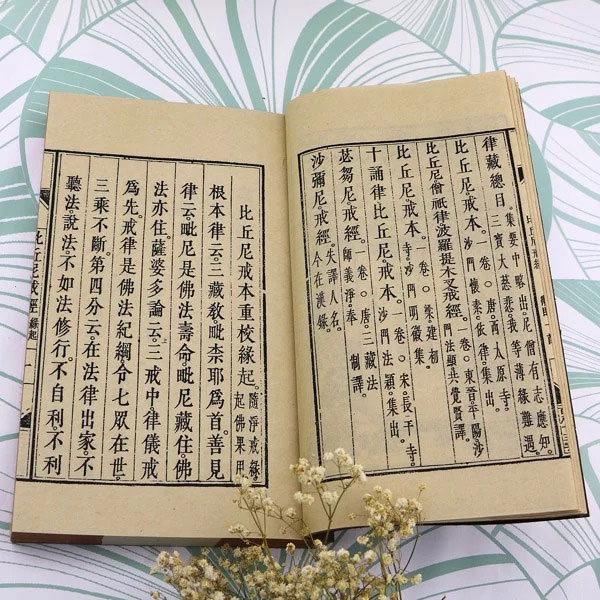 律藏總目。集要中略出。尼僧有志應知。三寶大慈悲。我等薄緣難遇。
比丘尼戒本。一卷○唐。西太原寺。沙門懷素。依律集出。
比丘尼僧祇律波羅提木叉戒經。一卷○東晉。平陽沙門法顯共覺賢譯。
比丘尼戒本。一卷○朱建初寺。沙門明徽集。
十誦律比丘尼戒本。一卷○宋。長干寺。沙門法穎。集出。
苾芻尼戒經。一卷○唐。三藏法師義淨。奉制譯。
沙彌尼戒經。失譯人名。今在漢錄。
比丘尼戒本重校緣起。隨淨戒緣。起佛果用
根本律云。三藏教毗柰耶爲首。善見
律云。毗尼是佛法壽命。毗尼藏住。佛
法亦住。薩婆多論云。三戒中。律儀戒
爲先。戒律是佛法紀綱。令七眾在世。
三乘不斷。第四分云。在法律出家。不
聽法。說法。不如法修行。不自利。不利
比丘尼戒經 緣起 一